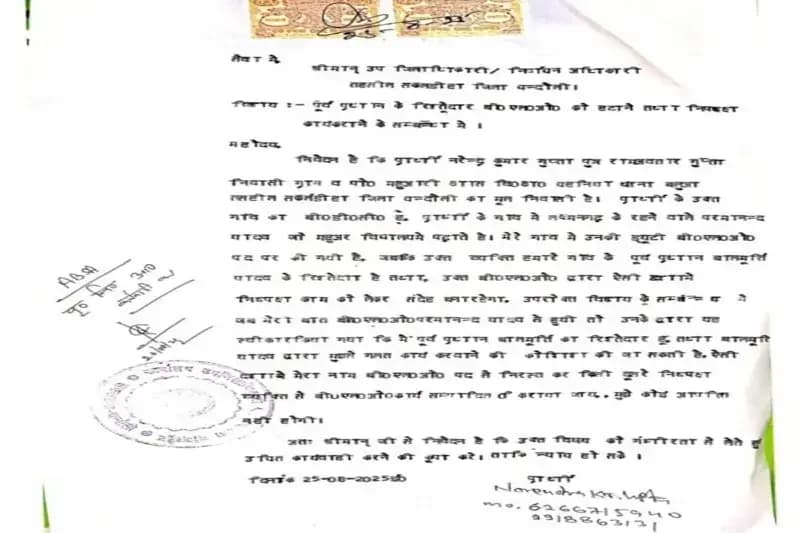 सेवा में,
श्रीमान् उप जिलाधिकारी/ निर्वाचन अधिकारी
तहसील सकलडीहा जिला चन्दौली।
विषय :- पूर्व प्रधान के रिश्तेदार बी०एल०ओ० को हटाने तथा निष्पक्ष
कार्य कराने के सम्बन्ध में ।
महोदय,
निवेदन है कि प्रार्थी नरेन्द्र कुमार गुप्ता पुत्र रामअवतार गुप्ता
निवासी ग्राम व पो० महुआरी खास वि०ख० चहनिया थाना बलुआ
तहसील सकलडीहा जिला चन्दौली का मूल निवासी है। प्रार्थी के उक्त
गांव का बी०डी०सी० है, प्रार्थी के गांव में लक्ष्मनगढ़ के रहने वाले परमानन्द
यादव जो महुअर विद्यालय में पढ़ाते है। मेरे गांव में उनकी ड्यूटी बी०एल०ओ०
पद पर की गयी है, जबकि उक्त व्यक्ति हमारे गांव के पूर्व प्रधान बालमूर्ति
यादव के रिश्तेदार है तथा, उक्त बी०एल०ओ० द्वारा ऐसी दशा में
निष्पक्ष काम को लेकर संदेह बना रहेगा, उपरोक्त विषय के सम्बन्ध में
जब मेरी बात बी०एल०ओ० परमानन्द यादव से हुयी तो उनके द्वारा यह
स्वीकार किया गया कि मै पूर्व प्रधान बालमूर्ति का रिश्तेदार हूं, तथा बालमूर्ति
यादव द्वारा मुझसे गलत कार्य करवाने की कोशिश की जा सकती है, ऐसी
दशा में मेरा नाम बी०एल०ओ० पद से निरस्त कर किसी दूसरे निष्पक्ष
व्यक्ति से बी०एल०ओ० कार्य सम्पादित कराया जाय, मुझे कोई आपत्ति
नही होगी।
अतः श्रीमान् जी से निवेदन है कि उक्त विषय को गंभीरता से लेते हुए
उचित कार्यवाही करने की कृपा करें। ताकि न्याय हो सके ।
दिनांक 25-08-2025ई०
प्रार्थी
Narendra Kr. Gupta
mo. 6266715940